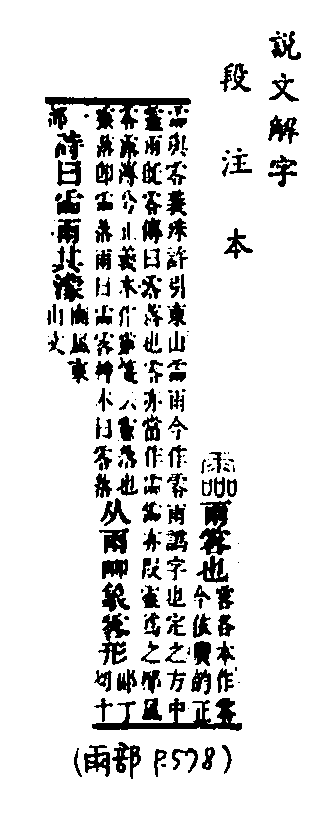 說文解字
段注本
霝
雨䨩也
䨩各本作零
今依廣韵正
霝與零義殊許引東山霝雨今作零雨譌字也定之方中
靈雨既零傳曰零落也零亦當作霝霝亦叚靈爲之鄭風
零露漙兮正義本作靈箋云靈落也
靈落即霝落雨曰霝䨩艸木曰零落
从雨𠱠象䨩形
郎丁
切十
一部
詩曰霝雨其濛
豳風東
山文
(雨部 P.578)